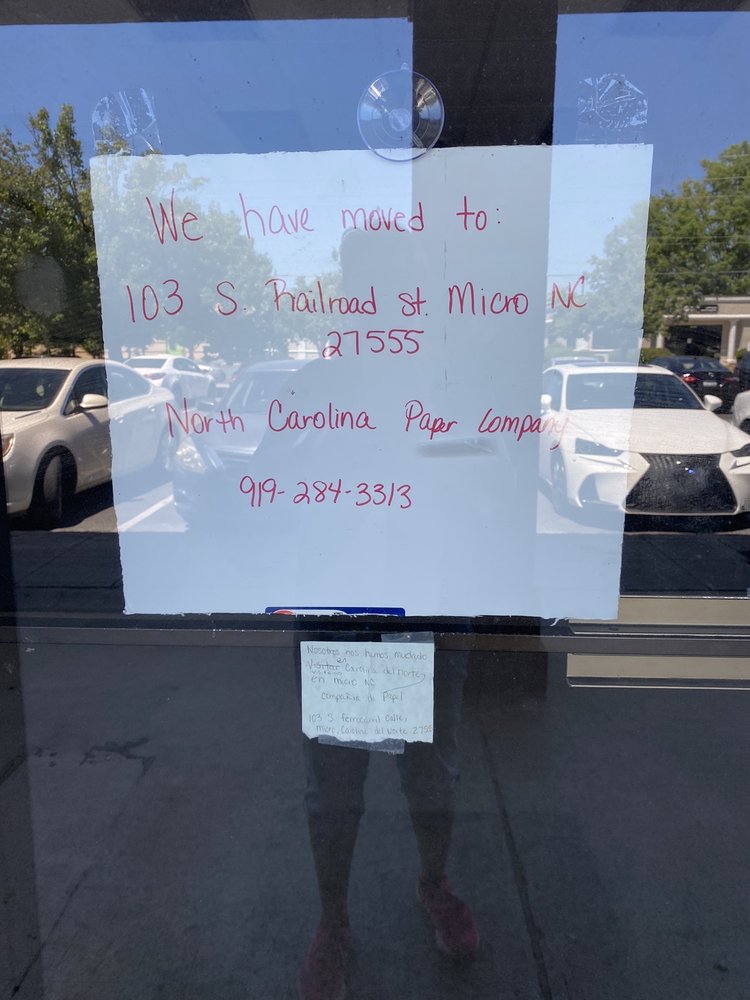 We have moved to:
103 S. Railroad St. Micro NC
27555
North Carolina Paper Company
919-284-3313
Nosotros nos hemos mudado
en
Carolina del norte,
en micro NC
compañia de Papel
103 S ferrocarril calle,
micro, Carolina del Norte